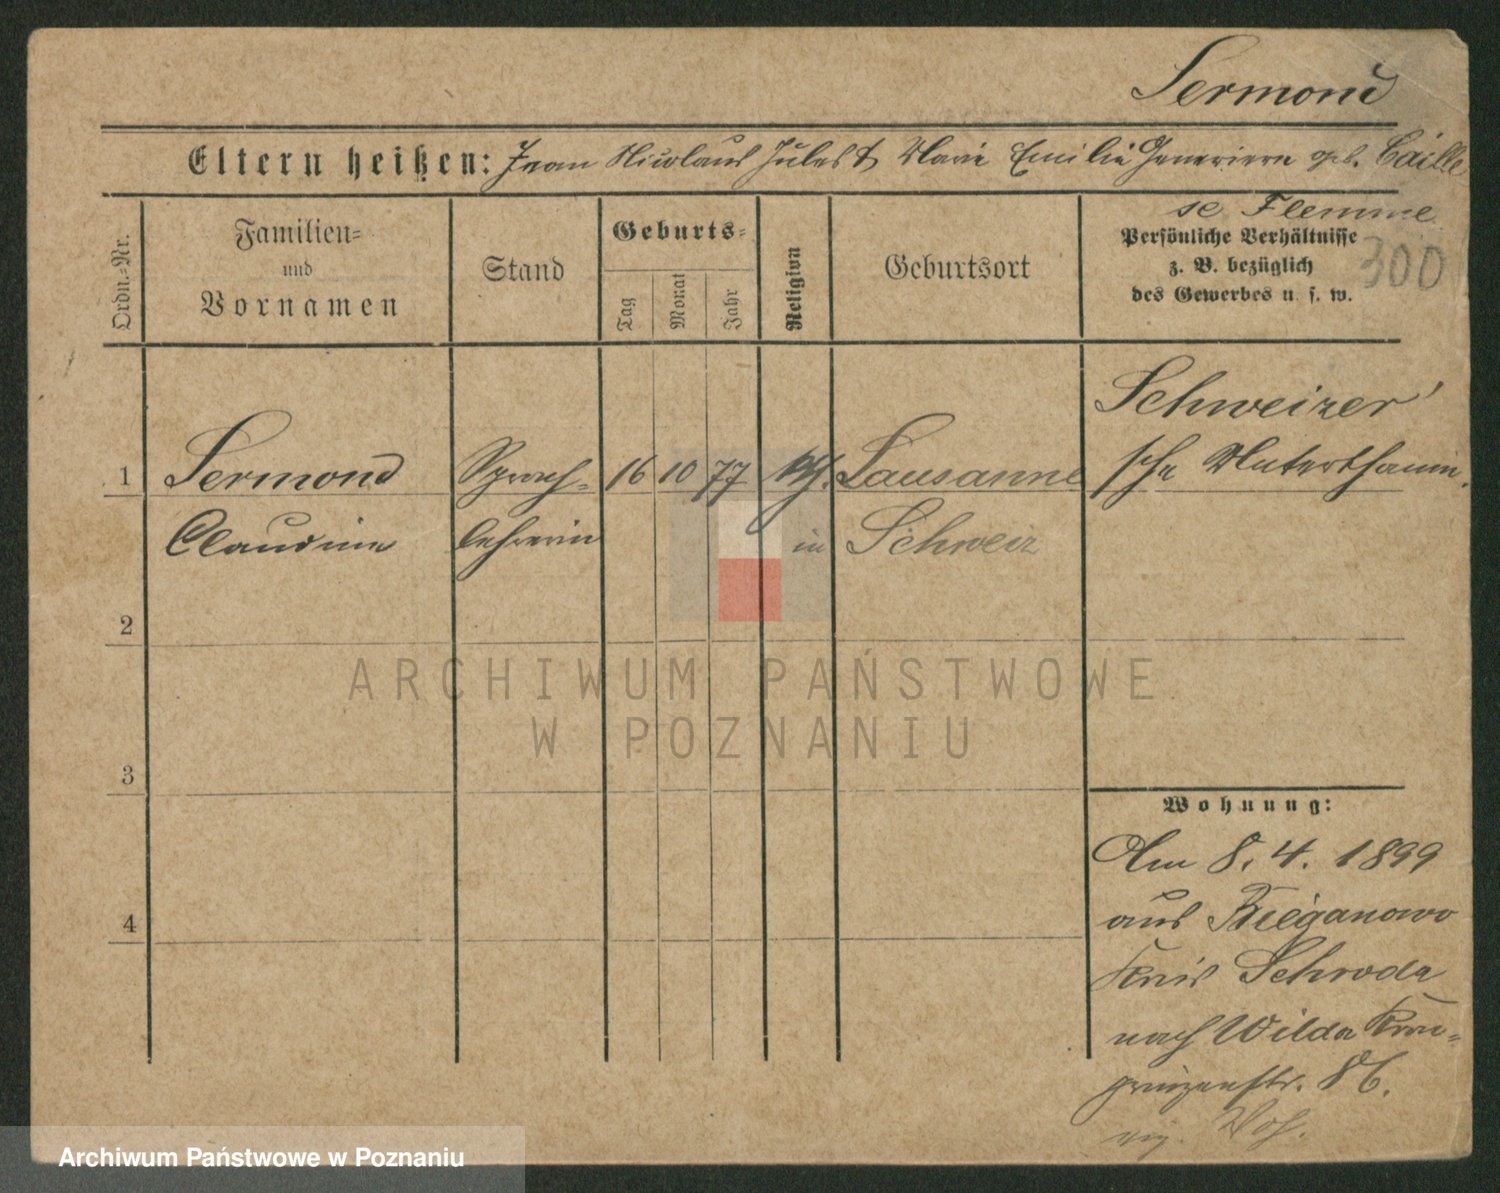 Sermond
Eltern heißen: Jean Nicolaus Jules & Marie Emilie Genevieve geb. Caille
se Flemme
Ordn.-Nr.
Familien-
und
Vornamen
Stand
Geburts-
Tag
Monat
Jahr
Religion
Geburtsort
Persönliche Verhältnisse
z. B. bezüglich
des Gewerbes u. s. w.
300
Schweizer
1 Sermond Sprach- 16 10 77 kth. Lausanne sche Unterthanin.
Claudine lehrerin in Schweiz
2
3
4
Wohnung:
Am 8. 4. 1899
aus Bieganowo
Kreis Schroda
nach Wilda Kron-
prinzenstr. 86.
ARCHIWUM PAŃSTWOWE
W POZNANIU
Archiwum Państwowe w Poznaniu